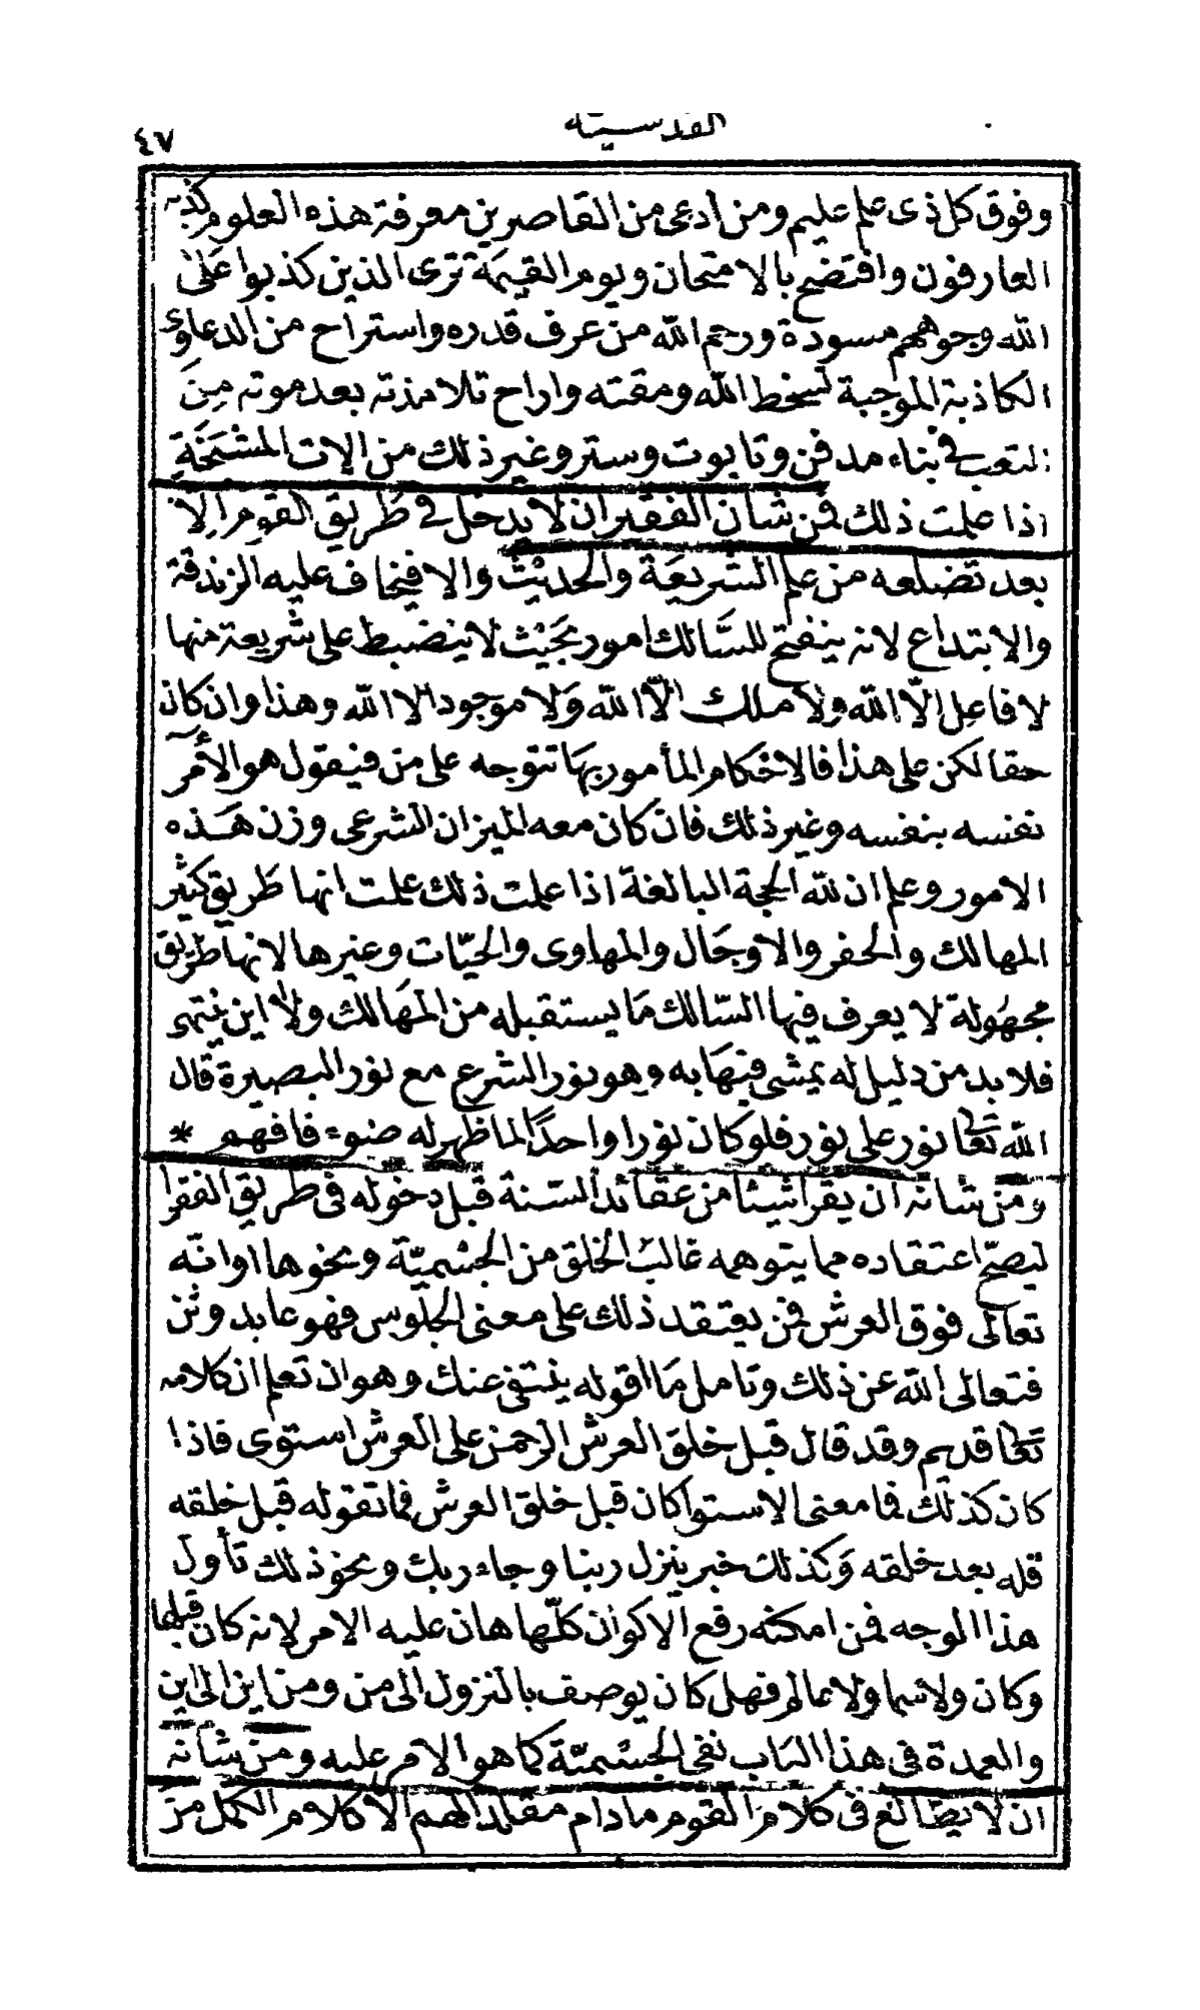 القدسية
٤٧
وفوق كل ذى علم عليم ومن أدعى من القاصرين معرفة هذه العلوم كذبه
العارفون وافتضح بالامتحان ويوم القيمة ترى الذين كذبوا على
الله وجوههم مسودة ورحم الله من عرف قدره واستراح من الدعاوى
الكاذبة الموجبة لسخط الله ومقته واراح تلامذته بعد موته من
التعب فى بناء مدفن وتابوت وستر وغير ذلك من الات المشتخة
اذا علمت ذلك فمن شأن الفقير ان لا يدخل فى طريق القوم الا
بعد تضلعه من علم الشريعة والحديث والا فيخاف عليه الزندقة
والابتداع لانه ينفتح للسالك امور بحيث لا ينضبط على شريعة منها
لا فاعل الا الله ولا ملك الا الله ولا موجود الا الله وهذا وان كان
حقا لكن على هذا فالاحكام المأمور بها تتوجه على من فيقول هو الأمر
نفسه بنفسه وغير ذلك فان كان معه الميزان الشرعى وزن هذه
الامور وعلم ان لله الحجة البالغة اذا علمت ذلك علمت انها طريق كثير
المهالك والحفر والاوجال والمهاوى والحيّات وغيرها لانها طريق
مجهولة لا يعرف فيها السّالك ما يستقبله من المهالك ولا اين ينتهى
فلا بد من دليل له يمشى فيها به وهو نور الشرع مع نور البصيرة قال
الله تعا نور على نور فلو كان نورا واحدًا لما ظهر له ضوء فافهم *
ومن شانه ان يقرا شيئا من عقائد السّنة قبل دخوله فى طريق الفقرا
ليصحّ اعتقاده مما يتوهمه غالب الخلق من الجسميّة ونحوها اوانّه
تعالى فوق العرش فمن يعتقد ذلك على معنى الجلوس فهو عابد وثن
فتعالى الله عن ذلك وتامل ما اقوله ينتفى عنك وهو ان تعلم ان كلامه
تعا قديم وقد قال قبل خلق العرش الرحمن على العرش استوى فاذا
كان كذلك فما معنى الاستوا كان قبل خلق العرش فما تقوله قبل خلقه
قله بعد خلقه وكذلك خبر ينزل ربنا وجاء ربك ونحو ذلك تأول
هذا الوجه فمن امكنه رفع الاكوان كلّها هان عليه الامر لانه كان قبلها
وكان ولا سما ولا عالم فهل كان يوصف بالنزول الى من ومن اين الى اين
والعمدة فى هذا الباب نفى الجسميّة كما هو الامر عليه ومن شأنه
ان لا يطالع فى كلام القوم مادام مقلدا لهم الا كلام الكمل من